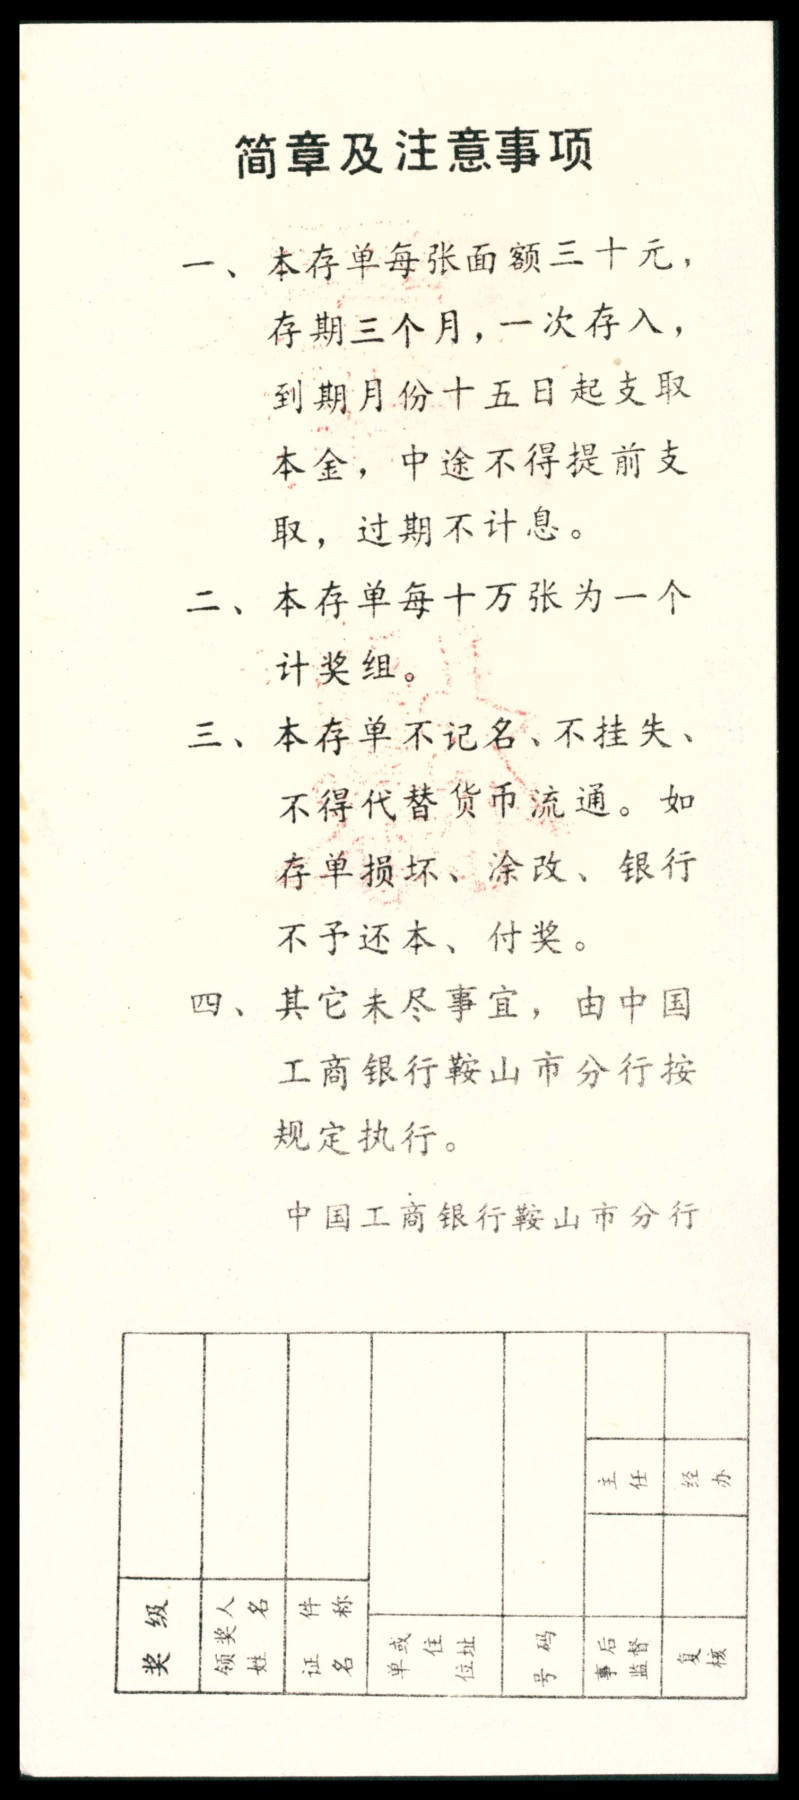 简章及注意事项
一、本存单每张面额三十元，
存期三个月，一次存入，
到期月份十五日起支取
本金，中途不得提前支
取，过期不计息。
二、本存单每十万张为一个
计奖组。
三、本存单不记名、不挂失、
不得代替货币流通。如
存单损坏、涂改、银行
不予还本、付奖。
四、其它未尽事宜，由中国
工商银行鞍山市分行按
规定执行。
中国工商银行鞍山市分行
奖级
领奖人
姓名
证件
名称
单或
住
位址
号码
事后
监督
主任
复核
经办